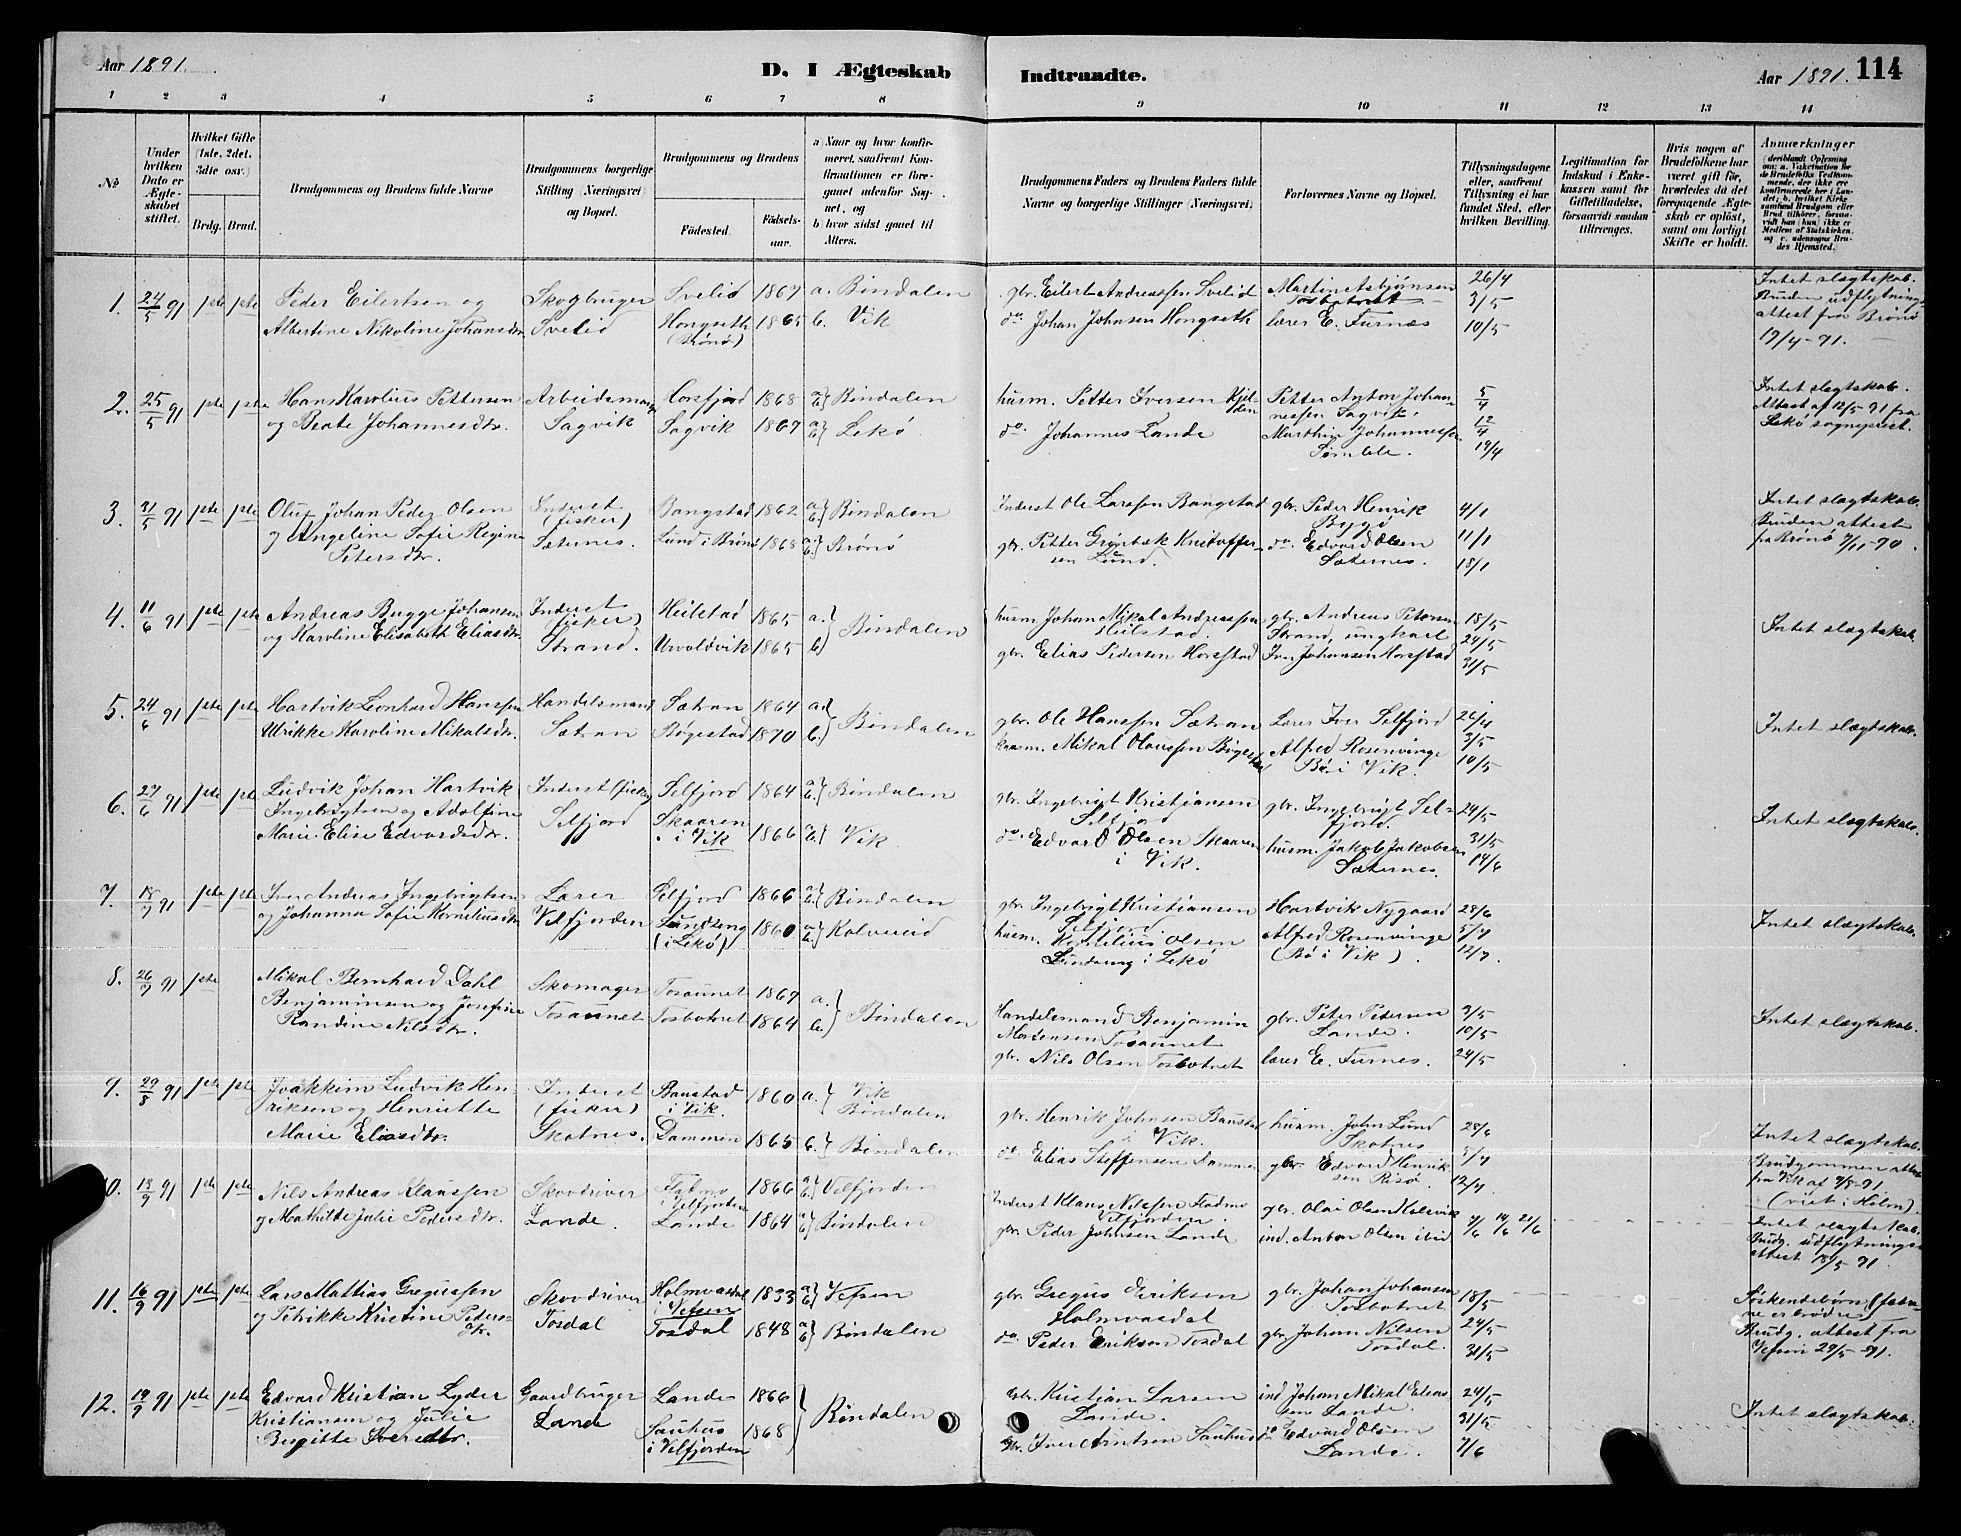 Aar 1891.
D. I Ægteskab Indtraadte.
Aar 1891. 114
1 2 3 4 5 6 7 8 9 10 11 12 13 14
№
Under hvilken Dato er Ægteskabet stiftet.
Hvilket Gifte (1ste, 2det, 3die osv.)
Brdg. Brud.
Brudgommens og Brudens fulde Navne
Brudgommens borgerlige Stilling (Næringsvei) og Bopæl.
Brudgommens og Brudens
Fødested. Fødselsaar.
a) Naar og hvor konfirmeret, saafremt Konfirmationen er foregaaet udenfor Sognet, og
b) hvor sidst gaaet til Alters.
Brudgommens Faders og Brudens Faders fulde Navne og borgerlige Stillinger (Næringsvei)
Forlovernes Navne og Bopæl.
Tillysningsdagene eller, saafremt Tillysning ei har fundet Sted, efter hvilken Bevilling.
Legitimation for Indskud i Enkekassen samt for Giftetilladelse, forsaavidt saadan tiltrænges.
Hvis nogen af Brudefolkene har været gift før, hvorledes da det foregaaende Ægteskab er opløst, samt om lovligt Skifte er holdt.
Anmærkninger
1. 24/5 91 1ste 1ste Peder Eilertsen og Skogbruger Svelid 1867 a. Bindalen gbr. Eilert Andreassen Svelid Martin Asbjønsen Tosbotnet 26/4 3/5 Intet slægtskab.
Albertine Nikoline Johansdtr. Svelid Hongseth (Brønø) 1865 b. Vik do. Johan Johnsen Hongseth lærer E. Furnes 10/5 Bruden udflytningsattest fra Brønø 19/4-91.
2. 25/5 91 1ste 1ste Hans Karolius Pettersen Arbeidsmand Horsfjord 1868 a b} Bindalen husm. Petter Iversen Petter Anton Johannessen Sagvik 5/4 Intet slægtskab.
og Beate Johannesdtr. Sagvik Sagvik 1867 a b} Lekø do. Johannes Lande Marthin Johannessen 12/4 19/4 Attest af 12/5 91 fra Lekø sogneprest.
3. 31/5 91 1ste 1ste Oluf Johan Peder Olsen Inderst (fisker) Bangstad 1862 a b} Bindalen Inderst Ole Larssen Bangstad gbr. Peder Henrik Bygø 4/1 Intet slægtskab.
og Angeline Sofie Regine Petersdtr. Sæternes. Lund i Brønø 1868 a. b.} Brønø gbr. Petter Kristoffersen Lund. do. Edvard Olsen Sæternes. 11/1 18/1 Bruden attest fra Brønø 7/11-90.
4. 11/6 91 1ste 1ste Andreas Bugge Johansen Inderst (fisker) Heilstad 1865 a. husm. Johan Mikal Andreassen Heilstad. gbr. Andreas Petersen 18/5 Intet slægtskab.
og Karoline Elisabeth Eliasdtr. Strand. Urvoldvik 1865 b} Bindalen gbr. Elias Pedersen Horsfstad Strand, ungkarl Iver Johansen Horstad 24/5 31/5
5. 24/6 91 1ste 1ste Hartvik Leonhard Hanssen Handelsmand Sætran 1864 a. gbr. Ole Hanssen Sætran Lærer Iver Selfjord 26/4 Intet slægtskab.
Ulrikke Karoline Mikalsdtr. Sætran Bøgestad 1870 b.} Bindalen husm. Mikal Olaussen Bøgestad Alfred Rosenvinge Bø i Vik. 3/5 10/5
6. 27/6 91 1ste 1ste Ludvik Johan Hartvik Inderst (fisker) Selfjord 1864 a b} Bindalen gbr. Ingebrigt Kristiansen Selfjord gbr. Ingebrigt Selfjord. 24/5 Intet slægtskab.
Ingebrigtsen og Adolfine Marie Elise Edvardsdtr. Selfjord Skaaren i Vik 1866 a b} Vik do. Edvard Olsen Skaaren i Vik. husm. Jakob Jakobsen Sæternes. 31/5 14/6
7. 18/7 91 1ste 1ste Iver Andreas Ingebrigtsen Lærer Selfjord 1866 a b} Bindalen gbr. Ingebrigt Kristiansen Selfjord Hartvik Nygaard 28/6 Intet slægtskab.
og Johanna Sofie Korneliusdtr. Velfjorden Lundseng (i Lekø) 1860 a b} Kolvereid husm. Kornelius Olsen Lundseng i Lekø Alfred Rosenvinge (Bø i Vik). 5/7 12/7
8. 26/7 91 1ste Mikal Bernhard Dahl Skomager Tosaunet 1869 a. Handelsmand Benjamin gbr. Peter Pedersen Lande. 3/5 Intet slægtskab.
Benjaminsen og Josefine Randine Nilsdtr. Tosaunet Tosbotnet 1864 b.} Bindalen Mortensen Tosaunet gbr. Nils Olsen Tosbotnet lærer E. Furnes. 10/5 24/5
9. 29/8 91 1ste 1ste Joakkim Ludvik Henriksen og Henriette Inderst (fisker) Baustad i Vik. 1860 a. {Vik Bindalen gbr. Henrik Johnsen Baustad i Vik. husm. John Lund Skotnes 28/6 Intet slægtskab.
Marie Eliasdtr. Skotnes. Dammen 1865 b. } Bindalen do. Elias Steffensen Dammen gbr. Edvard Henriksen Risø. 5/7 12/7 Brudgommen attest fra Vik af 7/8-91 (viet i Holm).
10. 13/9 91 1ste 1ste Nils Andreas Klaussen Skovdriver i Velfjorden 1866 a b} Velfjorden Inderst Klaus Nilssen Velfjorden. gbr. Olai Olsen Kalsvik Intet slægtskab.
og Mathilde Julie Pedersdtr. Lande. Lande 1864 a b} Bindalen gbr. Peder Johnsen Lande ind. Anton Olsen ibid 7/6 14/6 21/6 Brudg. udflytningsattest 18/5-91.
11. 16/9 91 1ste 1ste Lars Mattias Gregussen Skovdriver Holmvasdal i Vefsen 1833 a b} Vefsen gbr. Gregus Eriksen Holmvasdal gbr. Johan Johansen Tosbotnet 18/5 Søskendebørn (fædrene er brødre)
og Petrikke Kristine Pedersdtr. Tosdal Tosdal 1848 a b} Bindalen do. Peder Eriksen Tosdal gbr. Johan Nilsen Tosdal. 24/5 31/5 Brudg. attest fra Vefsen 29/5-91.
12. 19/9 91 1ste 1ste Edvard Kristian Lyder Gaardbruger Lande 1866 gbr. Kristian Larsen Lande. ind Johan Mikal Eliassen Lande. 24/5 Intet slægtskab.
Kristiansen og Julie Birgitte Iversdtr. Lande Sauhus i Velfjorden 1868 } Bindalen gbr. Iver Arntsen Sauhus do Edvard Olsen Lande. 31/5 7/6